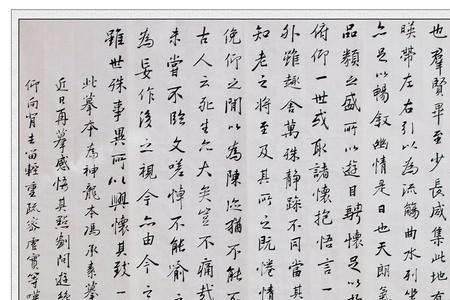 也群賢畢至少長咸集此地有
暎帶左右引以為流觴曲水列坐
亦足以暢敘幽情是日也天朗氣
品類之盛所以遊目騁懷足以極
俯仰一世或取諸懷抱悟言一
外雖趣舍萬殊靜躁不同當其
知老之將至及其所之既惓情
俛仰之閒以為陳迹猶不能不
古人云死生亦大矣豈不痛哉
未嘗不臨文嗟悼不能喻
為妄作後之視今亦由今之
雖世殊事異所以興懷其致一
此摹本為神龍本馮承素摹
近日再摹感悟其點劃間遊絲
仰向背去留輕重疏密虛實等